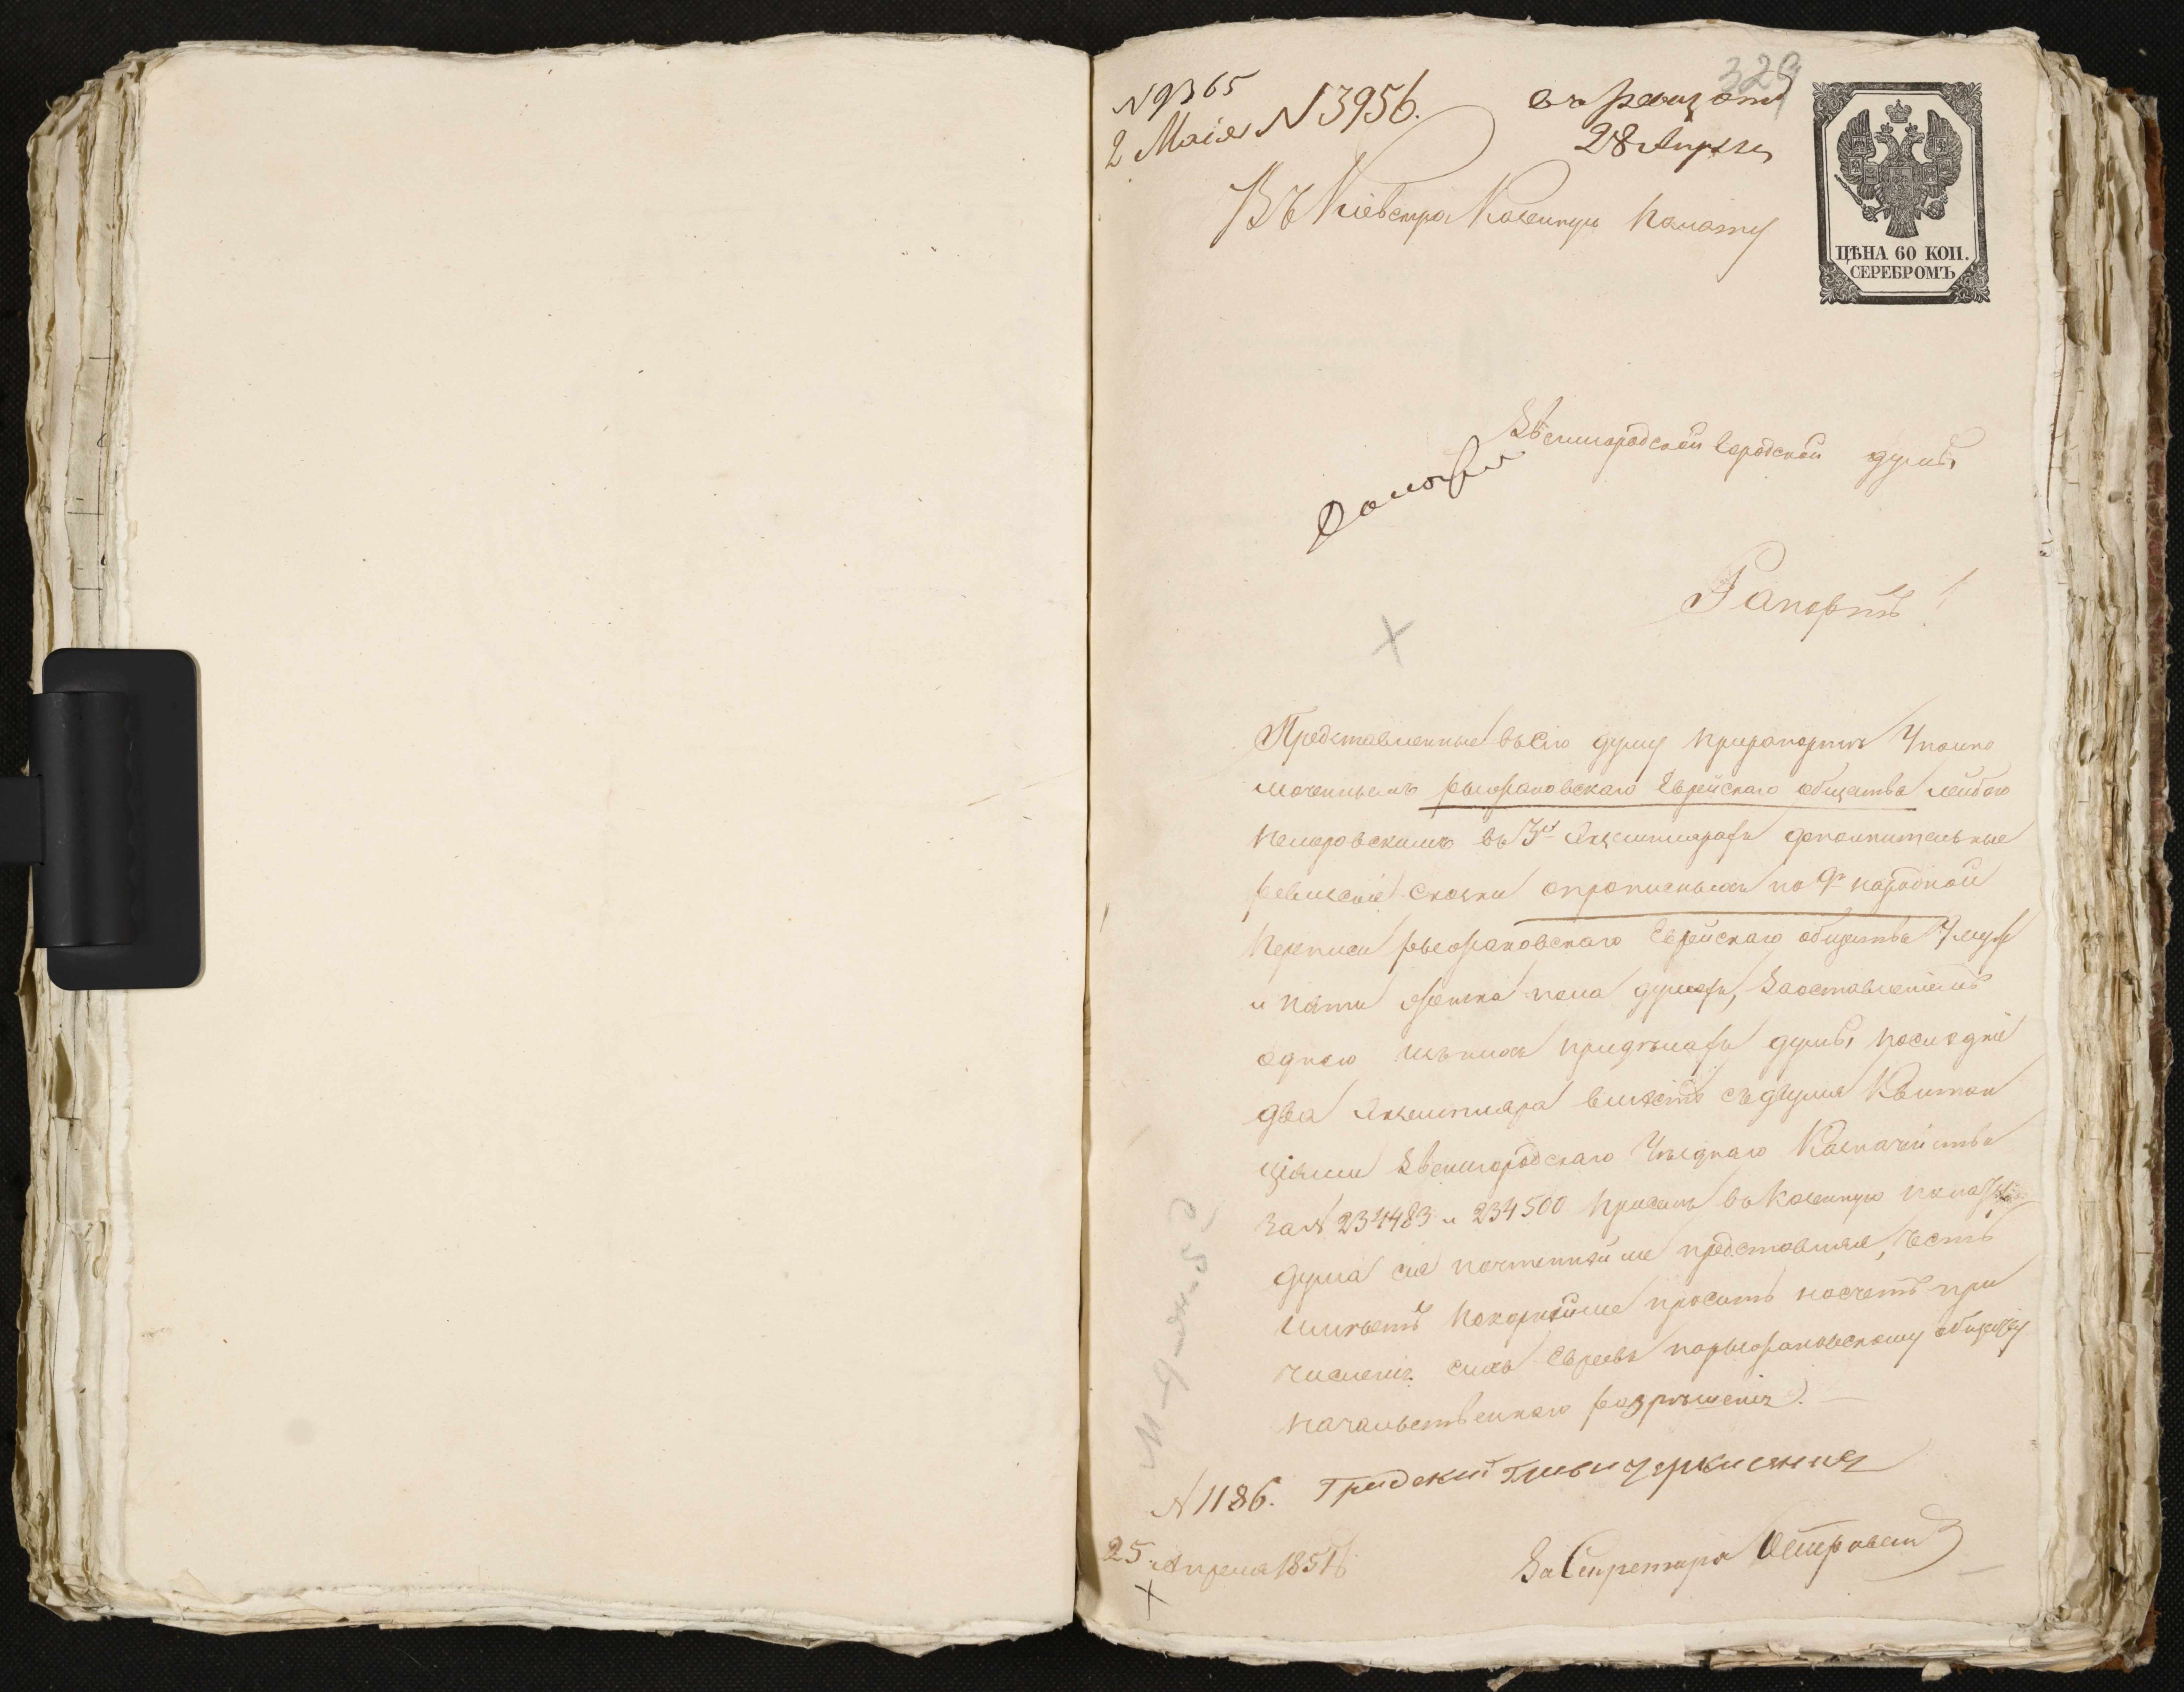 329
N 9365
2 Маія N 3956.
28 Апрѣля
Въ Кіевскую Казенную Палату
ЦѢНА 60 КОП.
СЕРЕБРОМЪ
Звенигородской Городской думы
Рапортъ
Представленные въ Сію думу при рапортѣ Уполно
моченнымъ рыжановскаго Еврейскаго общества Лейбою
въ 3хъ Экземплярахъ дополнительные
ревизскіе Сказки о прописныхъ по 9й народной
Переписи рыжановскаго Еврейскаго общества 9 муж
и пяти женска пола душахъ, За оставленіемъ
одного изъ нихъ при дѣлахъ думы, послѣдніе
два Экземпляра вмѣстѣ съ двумя Квитан
ціями Звенигородскаго Уѣзднаго Казначейства
За N 234483 и 234500 въ Казенную палату
дума сія почтеннѣйше представляя, Честь
имѣетъ Покорнѣйше просить насчетъ при
численія сихъ Евреевъ по рыжановскому обществу
начальственнаго разрѣшенія.
М-9-ж-5-д
N 1186.
Градскій Глава
25 Апреля 1851
За Секретаря